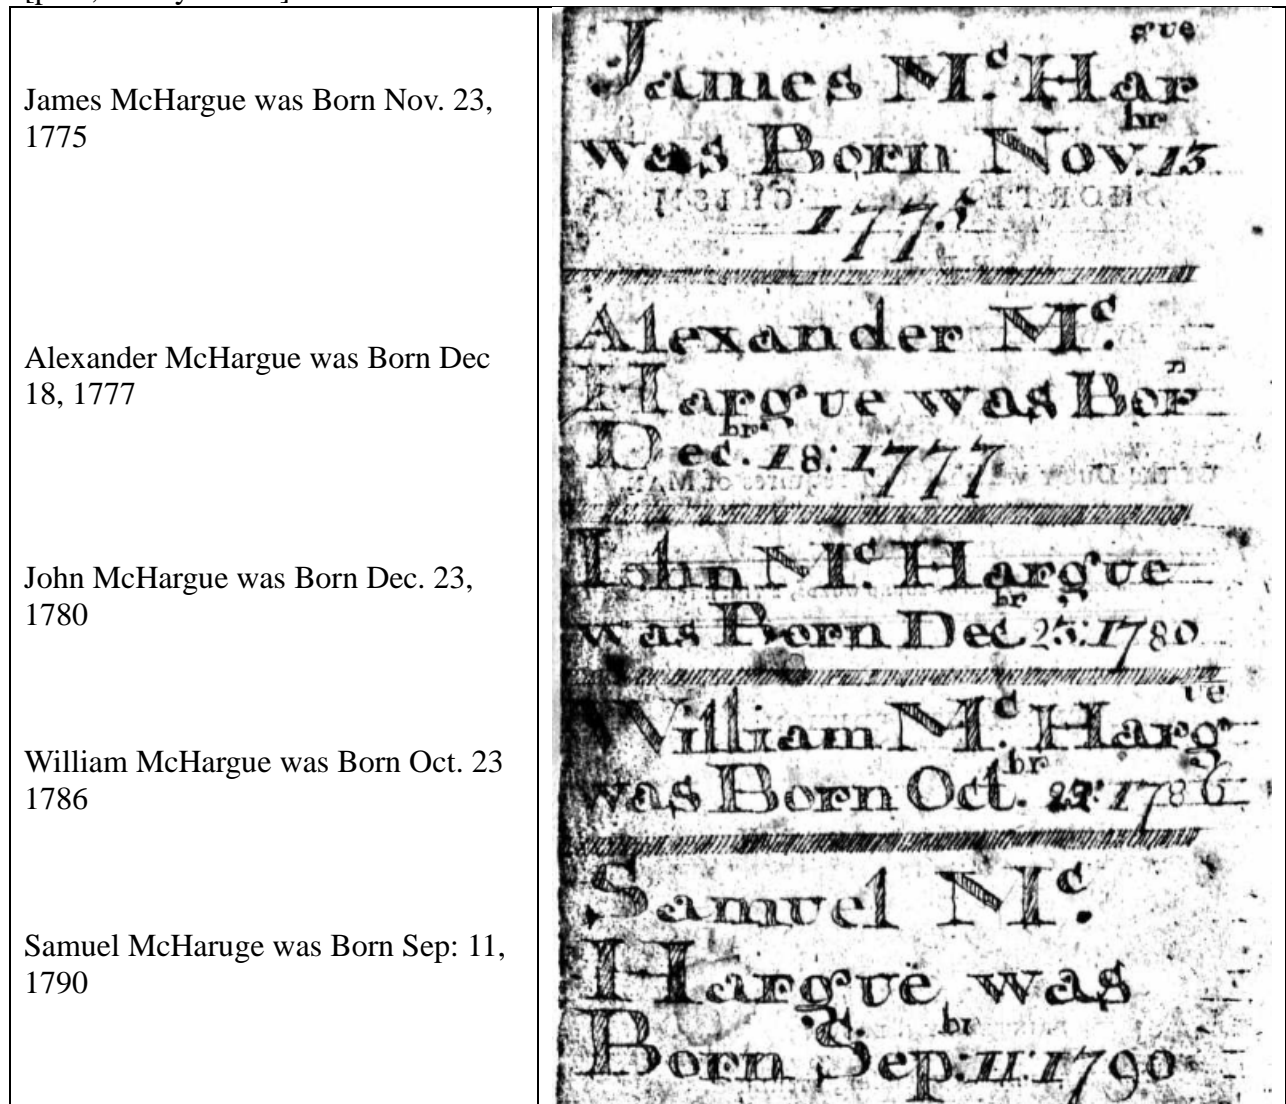 James McHargue was Born Nov. 23,
1775
Alexander McHargue was Born Dec
18, 1777
John McHargue was Born Dec. 23,
1780
William McHargue was Born Oct. 23
1786
Samuel McHaruge was Born Sep: 11,
1790
gue
James Mc. Har
br
was Born Nov. 13
1775
Alexander Mc.
n
Hargue was Bor
br
Dec. 18: 1777
Iohn Mc. Hargue
br
was Born Dec 23: 1780
ue
William Mc. Harg
br
was Born Oct. 1786
Samuel Mc.
Hargue was
br
Born Sep: 11: 1790